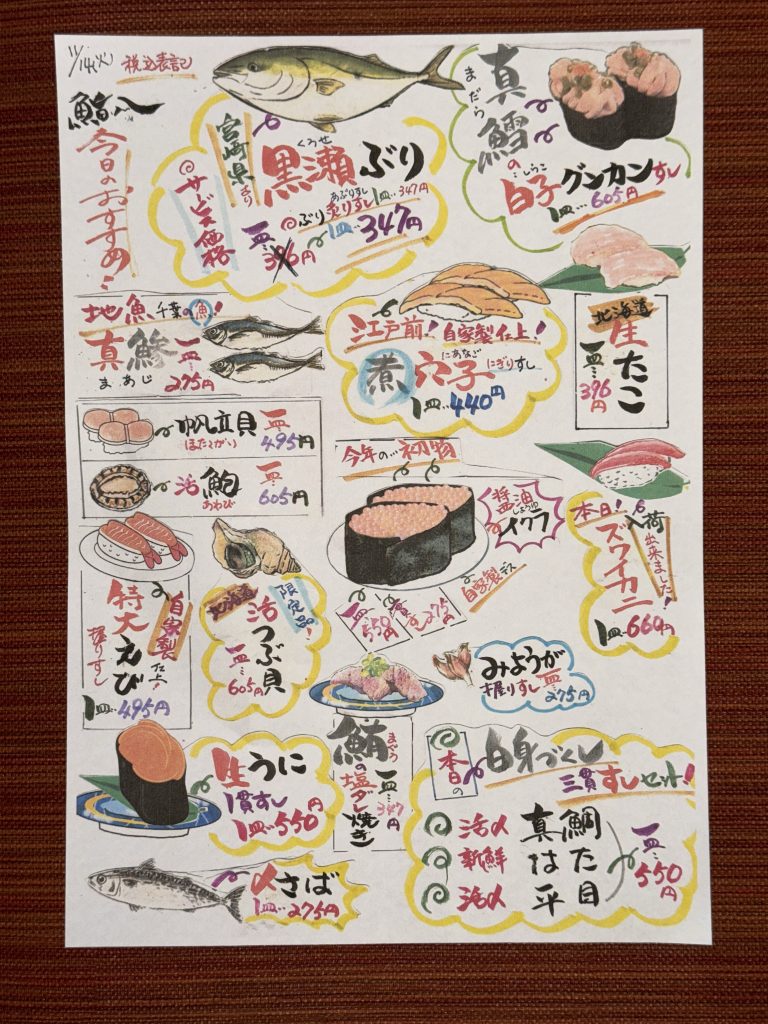 11/14(火)
税込表記
鮨八
今日のおすすめ!
宮崎県より
くろせ
黒瀬ぶり
サービス価格
あぶりすし
ぶり炙りすし1皿‥347円
一皿‥396円
1皿‥347円
まだら
真鱈の
しらこ
白子グンカンすし
1皿‥605円
地魚 千葉の魚!
真鯵
まあじ
一皿‥275円
江戸前!自家製仕上!
にあなご
煮穴子にぎりすし
1皿‥440円
北海道
生たこ
一皿‥396円
帆立貝
ほたてがい
一皿‥495円
活鮑
あわび
一皿‥605円
今年の‥初物
醤油
しょうゆ
イクラ
自家製です
一皿‥550円
すし275円
本日!
入荷出来ました!
ズワイカニ
1皿‥660円
自家製仕上!
特大えび
握りすし
1皿‥495円
限定品!
北海道
活つぶ貝
一皿‥605円
みょうが
握りすし 一皿‥275円
まぐろ
鮪の塩タレ焼き
一皿‥347円
生うに
1貫すし
1皿‥550円
本日の
白身づくし
三貫すしセット!
活〆 真鯛
新鮮 はた
活〆 平目
一皿‥550円
〆さば
1皿‥275円